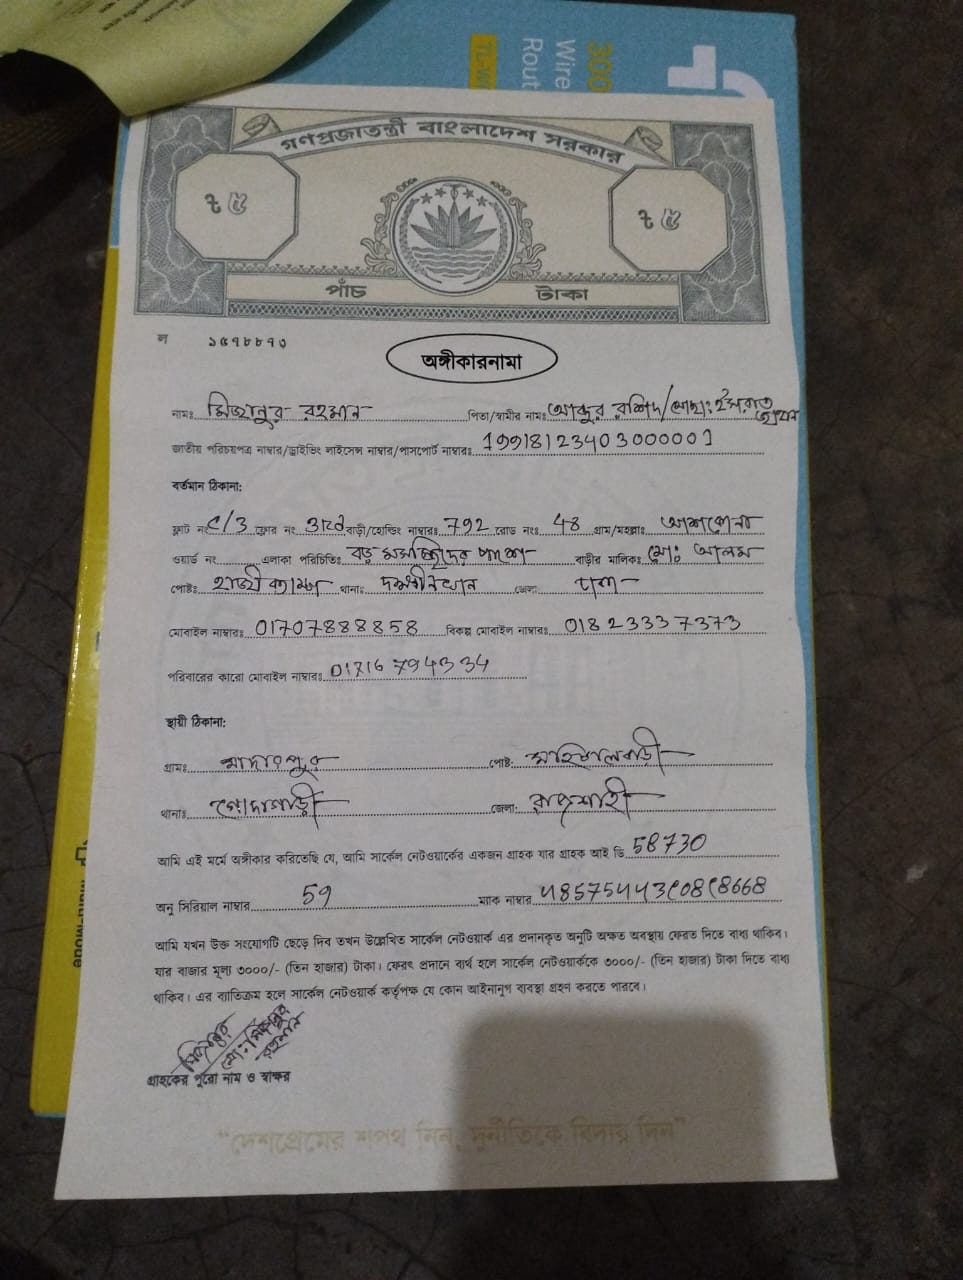 300
Wire
Rout
গণপ্রজাতন্ত্রী বাংলাদেশ সরকার
৳ ৫ ৳ ৫
পাঁচ টাকা
ল ১৫৭৮৮৭৩
অঙ্গীকারনামা
নামঃ মিজানুর রহমান পিতা/স্বামীর নামঃ আব্দুর রশিদ/মোছাঃ ইসরাত জাহান
জাতীয় পরিচয়পত্র নাম্বার/ড্রাইভিং লাইসেন্স নাম্বার/পাসপোর্ট নাম্বারঃ 19918123403000001
বর্তমান ঠিকানা:
ফ্লাট নং ৫/3 ফ্লোর নং 3য় বাড়ী/হোল্ডিং নাম্বারঃ 792 রোড নংঃ 48 গ্রাম/মহল্লাঃ আশকোনা
ওয়ার্ড নং এলাকা পরিচিতিঃ বড় মসজিদের পাশে বাড়ীর মালিকঃ মোঃ আলম
পোষ্টঃ হাজী ক্যাম্প থানাঃ দক্ষীনখান জেলাঃ ঢাকা
মোবাইল নাম্বারঃ 01707888858 বিকল্প মোবাইল নাম্বারঃ 01823337373
পরিবারের কারো মোবাইল নাম্বারঃ 01716794334
স্থায়ী ঠিকানা:
গ্রামঃ মাদারপুর পোষ্ট: মহিশালবাড়ী
থানাঃ গোদাগাড়ী জেলা: রাজশাহী
আমি এই মর্মে অঙ্গীকার করিতেছি যে, আমি সার্কেল নেটওয়ার্কের একজন গ্রাহক যার গ্রাহক আই ডি 58730
অনু সিরিয়াল নাম্বার 59 ম্যাক নাম্বার
আমি যখন উক্ত সংযোগটি ছেড়ে দিব তখন উল্লেখিত সার্কেল নেটওয়ার্ক এর প্রদানকৃত অনুটি অক্ষত অবস্থায় ফেরত দিতে বাধ্য থাকিব।
যার বাজার মূল্য ৩০০০/- (তিন হাজার) টাকা। ফেরৎ প্রদানে ব্যর্থ হলে সার্কেল নেটওয়ার্ককে ৩০০০/- (তিন হাজার) টাকা দিতে বাধ্য
থাকিব। এর ব্যতিক্রম হলে সার্কেল নেটওয়ার্ক কর্তৃপক্ষ যে কোন আইনানুগ ব্যবস্থা গ্রহন করতে পারবে।
মিজানুর
মোঃ মিজানুর
রহমান
গ্রাহকের পুরো নাম ও স্বাক্ষর
"দেশপ্রেমের শপথ নিন, দুর্নীতিকে বিদায় দিন"
Multi-Mode